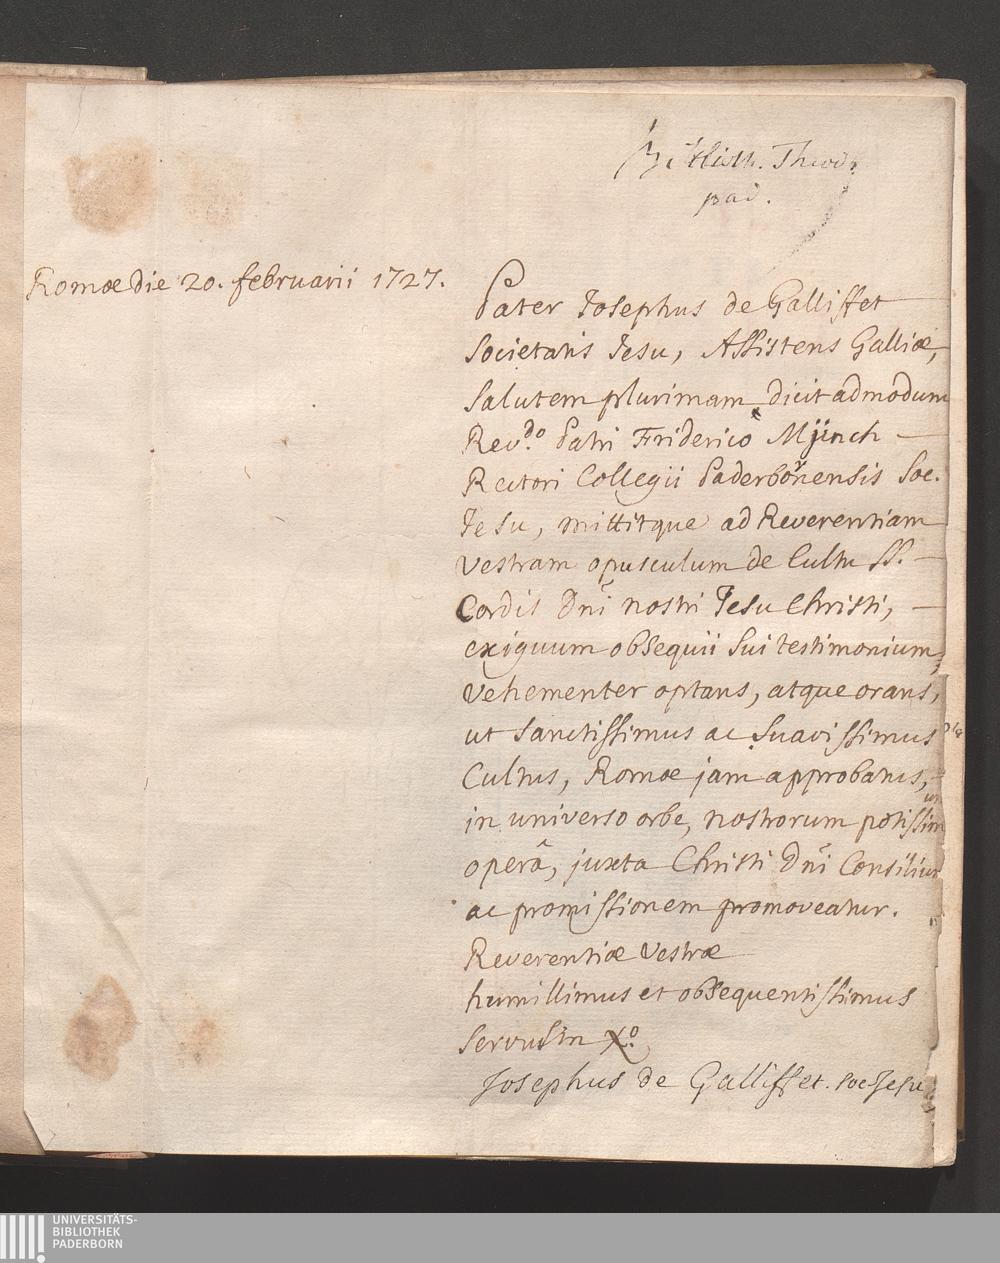 Biblioth. Theod.
pad.
Romæ die 20. februarii 1727.
Pater Josephus de Galliffet
Societatis Jesu, Assistens Galliæ,
Salutem plurimam dicit admodum
Rev.do Patri Friderico Münch
Rectori Collegii Paderbornensis Soc.
Jesu, mittitque ad Reverentiam
Vestram opusculum de Cultu SS.
Cordis Dnī nostri Jesu Christi,
exiguum obsequii sui testimonium,
vehementer optans, atque orans,
ut sanctissimus ac suavissimus
Cultus, Romæ jam approbatus,
in universo orbe, nostrorum potissim
um
operâ, juxta Christi Dnī Consilium
ac promissionem promoveatur.
Reverentiæ Vestræ
humillimus et obsequentissimus
servus in Xº.
Josephus de Galliffet. Soc. Jesu
UNIVERSITÄTS-
BIBLIOTHEK
PADERBORN